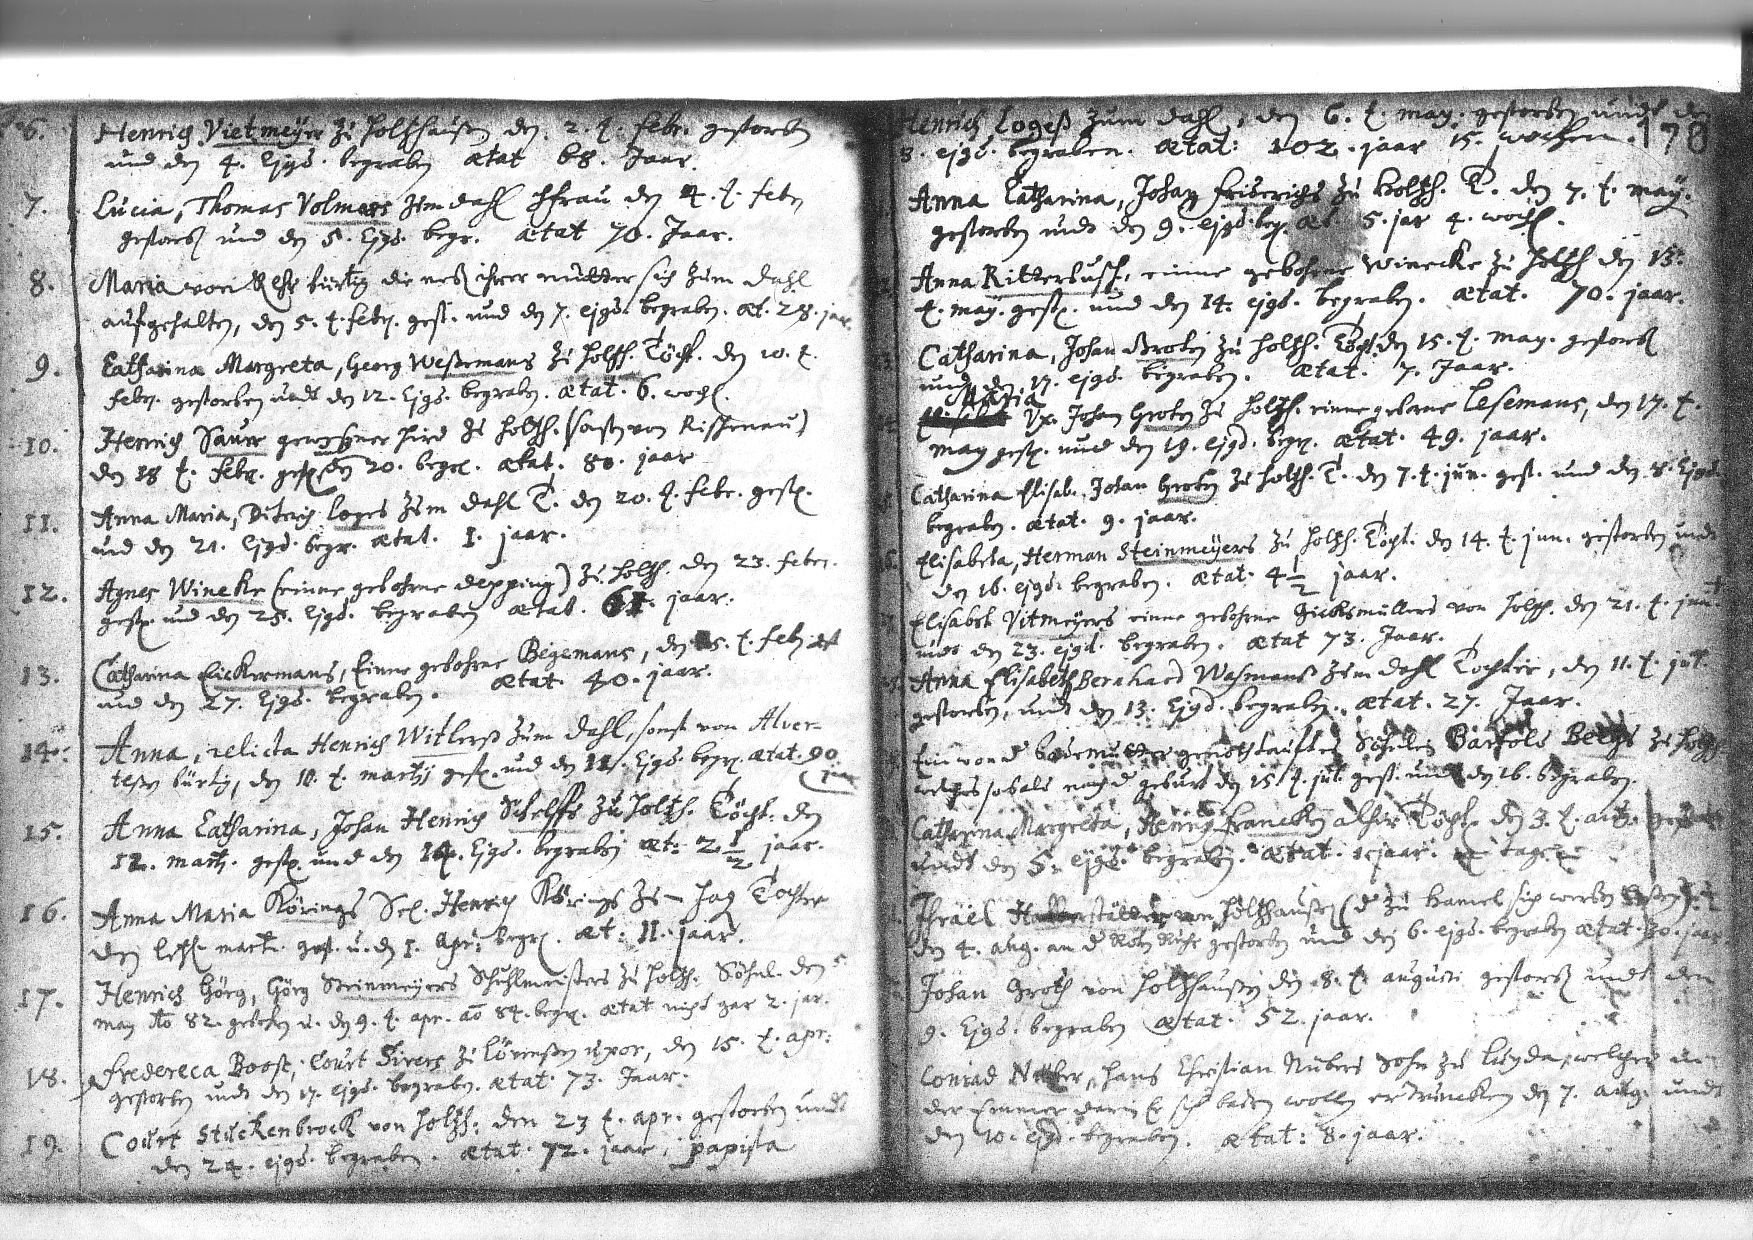 6. Henrich Vietmeyer zu Holtzhausen den 2. t. febr. gestorben
und den 4. Ejgd. begraben ætat 68. Jaar.
7. Lucia, Thomas Volmars zum dahl Ehfrau den 4. t. febr
gestorb und den 5. Ejgd. begr. ætat 70. Jaar.
8. Maria von bürtig die neb ihrer mutter sich zum dahl
aufgehalten, den 5. t. febr. gest. und den 7. ejgd. begraben. æt. 28. jar.
9. Catharina Margreta, Georg Weßemans zu Holtzh. Töcht. den 10. t.
febr. gestorben undt den 12. Ejgd. begraben. ætat. 6. woch.
10. Henrich Saur gewesener hird zu Holtzh. (sonst von Rischenau)
den 18 t. febr. gest. den 20. begr. ætat. 80. jaar
11. Anna Maria, Ditrich Loges zum dahl T. den 20. t. febr. gest.
und den 21. Ejgd. begr. ætat. 1. jaar.
12. Agnes Wineke (einne gebohrne Depping) zu Holtzh. den 23. febr.
gest. und den 25. Ejgd. begraben ætat. jaar.
13. Catharina Eickermans, Einne gebohrne Begemans, den 25. t. febr
und den 27. Ejgd. begraben. ætat. 40. jaar.
14. Anna, relicta Henrich Witlerß zum dahl, sonst von Alver-
teßen bürtig, den 10. t. martij gest. und den Ejgd. begr. ætat. 90.
jaar
15. Anna Catharina, Johan Henrich Schelffs zu Holtzh. Töcht. den
12. mart. gest. und den 14. Ejgd. begraben æt: 2 1/2 jaar.
16. Anna Maria Körings Sel. Henrich Körings zum Hag Tochter
den letst. mart. gest. u. den 1. Apr. begr. æt: 11. jaar.
17. Henrich Görg, Görg Steinmeyers Schuhlmeisters zu Holtzh. Söhnl. den 5
may Ao 82. geboren u. den 9. t. apr. ao 84. begr. ætat nicht gar 2. jar.
18. Fredereca Boost, Court Sivers zu Lövensen uxor, den 15. t. apr:
gestorben undt den 17. ejgd. begraben. ætat. 73. Jaar.
19. Court Stuckenbrock von Holtzh: den 23 t. apr. gestorben undt
den 24. ejgd. begraben. ætat. 72. jaar. papista
178
Henrich Logeß zum dahl, den 6. t. may. gestorben undt den
8. ejgd. begraben. ætat: 102. jaar 15. wochen.
Anna Catharina, Johan Friderichs zu Holtzh. T. den 7. t. may.
gestorben undt den 9. ejgd. beg. æt 5. jar 4. woch.
Anna Ritterbusch, einne gebohrne Winecke zu Holtzh den 13.
t. may. gest. und den 14. ejgd. begraben. ætat. 70. jaar.
Catharina, Johan Groten zu Holtzh. Töcht. den 15. t. may. gestorb
undt den 17. ejgd. begraben. ætat. 7. Jaar.
Maria
Ux. Johan Groten zu Holtzh. einne geborne Lesemans, den 17. t.
may gest. und den 19. ejgd. begr. ætat. 49. jaar.
Catharina Elisab. Johan Groten zu Holtzh. T. den 7. t. jun. gest. und den 8. Ejgd.
begraben. ætat. 9. jaar.
Elisabeta, Herman Steinmeyers zu Holtzh. Töcht. den 14. t. jun. gestorben undt
den 16. ejgd. begraben. ætat. 4 1/2 jaar.
Elisabet Vitmeyers einne gebohrne von Holtzh. den 21. t. jun.
undt den 23. ejgd. begraben. ætat 73. Jaar.
Anna Elisabeth Bernhard Waßmanß zum dahl Tochter, den 11. t. jul.
gestorben, undt den 13. Ejgd. begraben. ætat. 27. Jaar.
Ein von d bademutter genohttauftes Söhnlein Bartold zu Holtzh
welches sobald nach d geburt den 15. t. jul. gest. undt den 16. begraben.
Catharina Margreta, Henrich Francken alhir Töcht. den 3. t. aug.
undt den 5. ejgd. begraben. ætat. 1 jaar. tage
Israel von Holtzhausen (d zu Hameel sich werben
den 4. aug. an d Roten Ruhr gestorben und den 6. ejgd. begraben ætat. 30. jaar
Johan Groth von Holtzhausen den 8. t. augusti gestorb undt den
9. Ejgd. begraben ætat. 52. jaar.
Conrad Hans Christian Nubers Sohn zu Lugda, welcher in
der Emmer darin Er sich baden wollen ertruncken den 7. aug. undt
den 10. ejgd. begraben. ætat: 8. jaar.